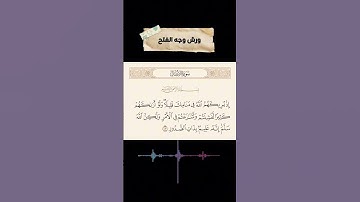 ورش وجه الفتح
سورة الأنفال
إِذْ يُرِيكَهُمُ اللَّهُ فِي مَنَامِكَ قَلِيلًا وَلَوْ أَرَىٰكَهُمْ
كَثِيرًا لَّفَشِلْتُمْ وَلَتَنَٰزَعْتُمْ فِي الْأَمْرِ وَلَٰكِنَّ اللَّهَ
سَلَّمَ إِنَّهُ عَلِيمٌ بِذَاتِ الصُّدُورِ